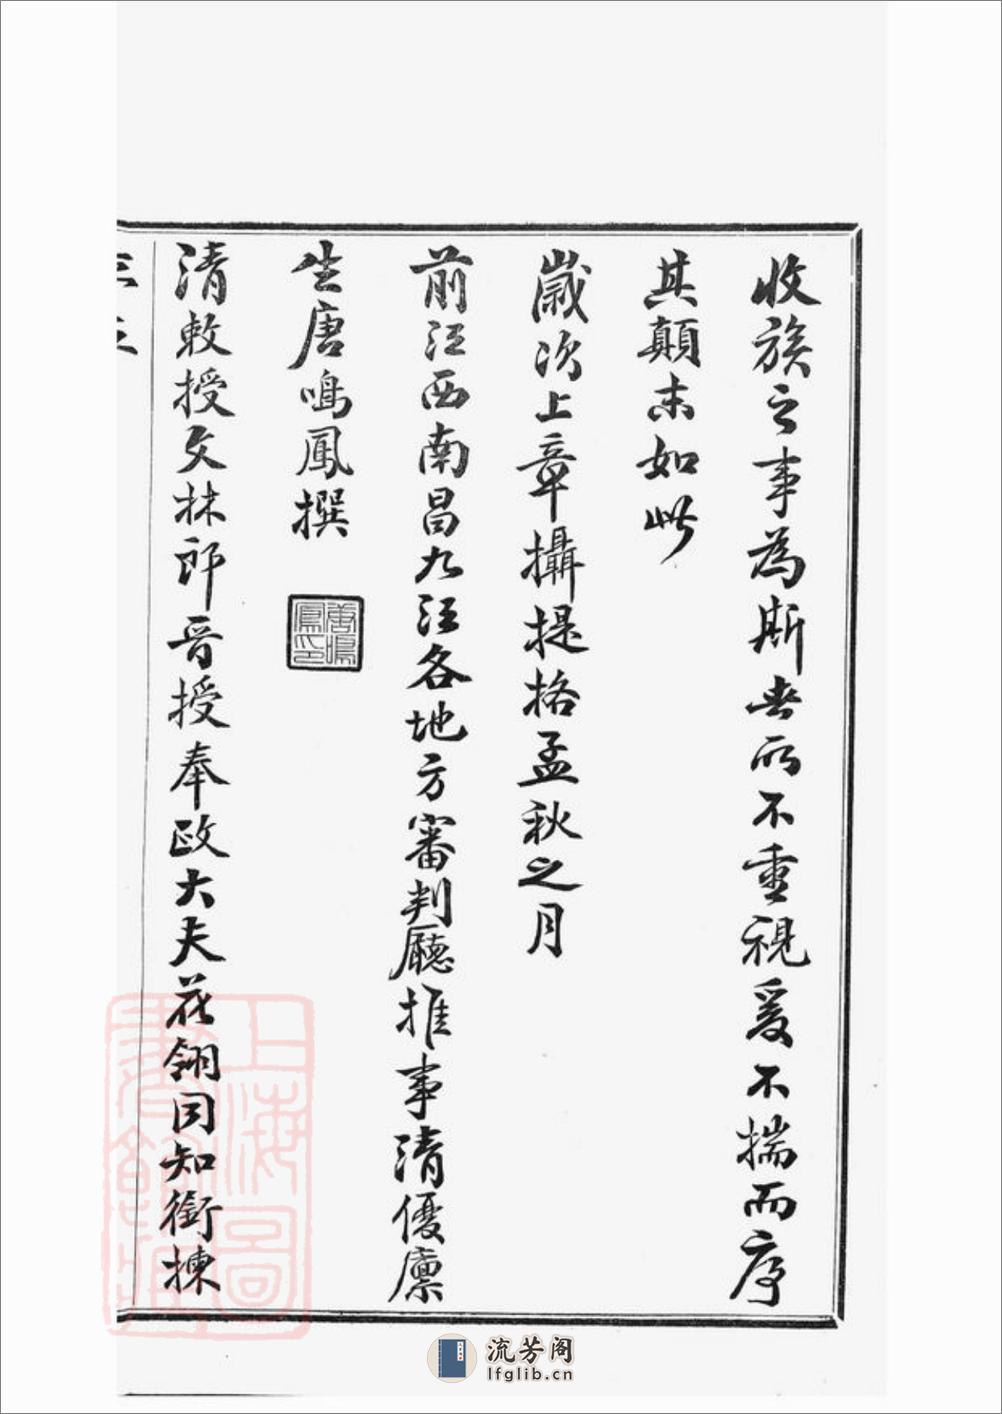 收族之事為斯世所不重視爰不揣而序
其顛末如此
歲次上章攝提格孟秋之月
前江西南昌九江各地方審判廳推事清優廪
生唐鳴鳳撰
唐鳴鳳印
清敕授文林郎晉授奉政大夫花翎同知銜揀
上海圖書館藏
流芳阁
lfglib.cn